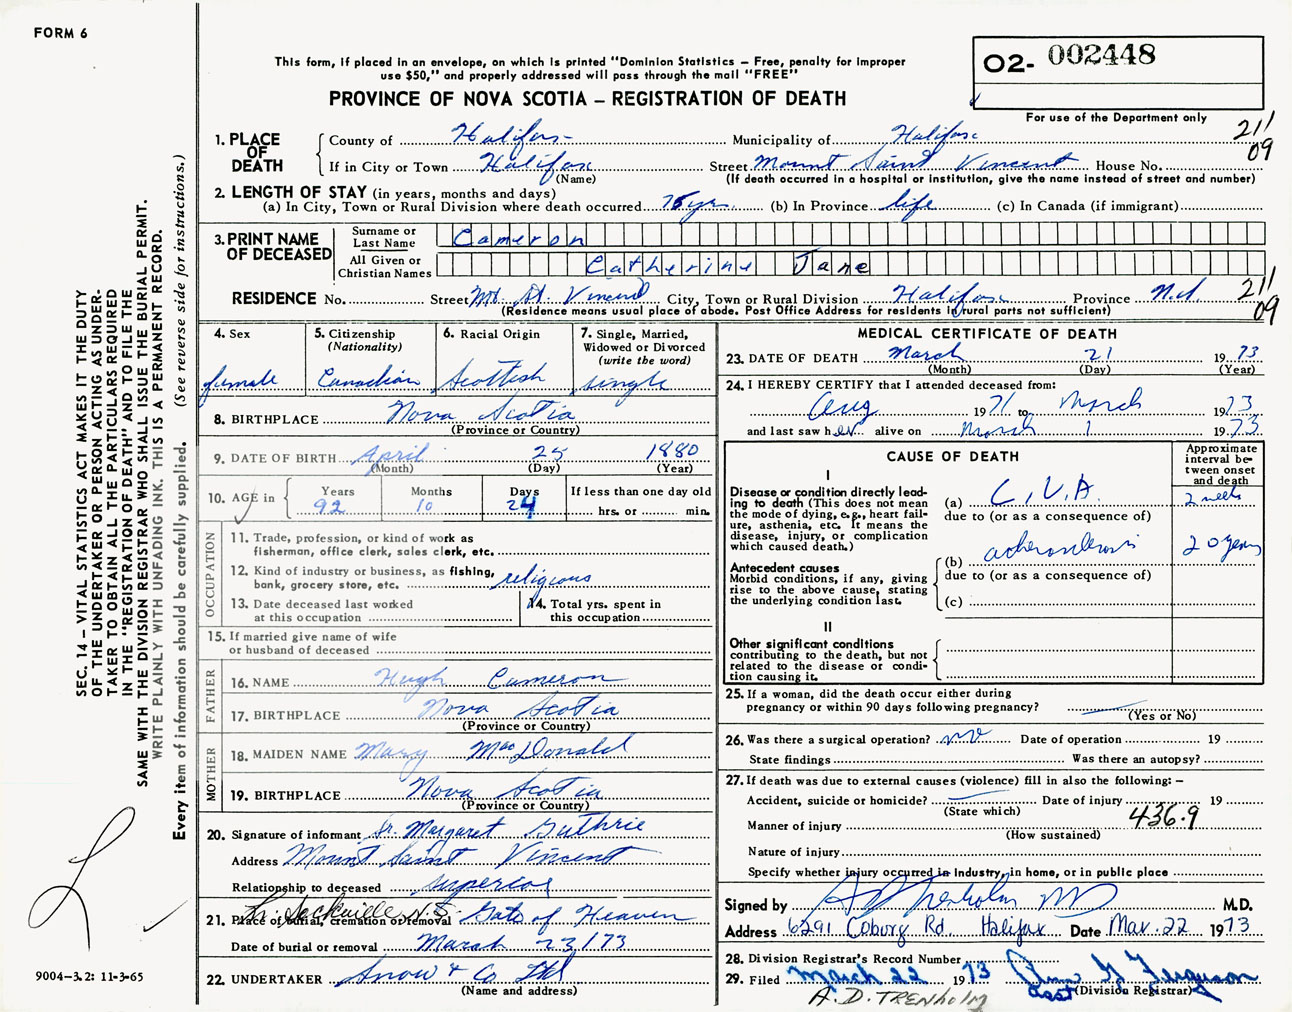 FORM 6
This form, if placed in an envelope, on which is printed "Dominion Statistics – Free, penalty for improper
use $50," and properly addressed will pass through the mail "FREE"
PROVINCE OF NOVA SCOTIA – REGISTRATION OF DEATH
O2- 002448
For use of the Department only
211
09
1. PLACE OF DEATH
County of Halifax Municipality of Halifax
If in City or Town Halifax Street Mount Saint Vincent House No.
(Name) (If death occurred in a hospital or institution, give the name instead of street and number)
2. LENGTH OF STAY (in years, months and days)
(a) In City, Town or Rural Division where death occurred 75 yrs. (b) In Province life (c) In Canada (if immigrant)
3. PRINT NAME OF DECEASED
Surname or Last Name Cameron
All Given or Christian Names Catherine Jane
RESIDENCE No. Street Mt. St. Vincent City, Town or Rural Division Halifax Province N.S. 211
(Residence means usual place of abode. Post Office Address for residents in rural parts not sufficient) 09
4. Sex
female
5. Citizenship
(Nationality)
Canadian
6. Racial Origin
Scottish
7. Single, Married,
Widowed or Divorced
(write the word)
single
8. BIRTHPLACE Nova Scotia
(Province or Country)
9. DATE OF BIRTH April 25 1880
(Month) (Day) (Year)
10. AGE in Years Months Days If less than one day old
92 10 24 hrs. or min.
OCCUPATION
11. Trade, profession, or kind of work as
fisherman, office clerk, sales clerk, etc.
12. Kind of industry or business, as fishing,
bank, grocery store, etc. religious
13. Date deceased last worked
at this occupation
14. Total yrs. spent in
this occupation
15. If married give name of wife
or husband of deceased
FATHER
16. NAME Hugh Cameron
17. BIRTHPLACE Nova Scotia
(Province or Country)
MOTHER
18. MAIDEN NAME Mary MacDonald
19. BIRTHPLACE Nova Scotia
(Province or Country)
20. Signature of informant Sr. Margaret Guthrie
Address Mount Saint Vincent
Relationship to deceased superior
21. Place of burial, cremation or removal Gate of Heaven
Sackville N.S.
Date of burial or removal March 23/73
22. UNDERTAKER Snow & Co Ltd
(Name and address)
MEDICAL CERTIFICATE OF DEATH
23. DATE OF DEATH March 21 1973
(Month) (Day) (Year)
24. I HEREBY CERTIFY that I attended deceased from:
Aug 1971 to March 1973
and last saw her alive on March 1 1973
CAUSE OF DEATH
Approximate
interval be-
tween onset
and death
I
Disease or condition directly lead-
ing to death (This does not mean
the mode of dying, e.g., heart fail-
ure, asthenia, etc. It means the
disease, injury, or complication
which caused death.)
(a) C.V.A. 2 weeks
due to (or as a consequence of)
Antecedent causes
Morbid conditions, if any, giving
rise to the above cause, stating
the underlying condition last.
(b) 20 years
due to (or as a consequence of)
(c)
II
Other significant conditions
contributing to the death, but not
related to the disease or condi-
tion causing it.
25. If a woman, did the death occur either during
pregnancy or within 90 days following pregnancy?
(Yes or No)
26. Was there a surgical operation? no Date of operation 19
State findings Was there an autopsy?
27. If death was due to external causes (violence) fill in also the following: –
Accident, suicide or homicide? Date of injury 19
(State which)
Manner of injury 436.9
(How sustained)
Nature of injury
Specify whether injury occurred in Industry, in home, or in public place
Signed by A D Trenholm MD M.D.
Address 6291 Coburg Rd Halifax Date Mar. 22 1973
28. Division Registrar's Record Number
29. Filed March 22 1973 Ann G Ferguson
Asst (Division Registrar)
A.D. TRENHOLM
SEC. 14 – VITAL STATISTICS ACT MAKES IT THE DUTY
OF THE UNDERTAKER OR PERSON ACTING AS UNDER-
TAKER TO OBTAIN ALL THE PARTICULARS REQUIRED
IN THE "REGISTRATION OF DEATH" AND TO FILE THE
SAME WITH THE DIVISION REGISTRAR WHO SHALL ISSUE THE BURIAL PERMIT.
WRITE PLAINLY WITH UNFADING INK. THIS IS A PERMANENT RECORD.
Every item of information should be carefully supplied. (See reverse side for instructions.)
9004-3.2: 11-3-65